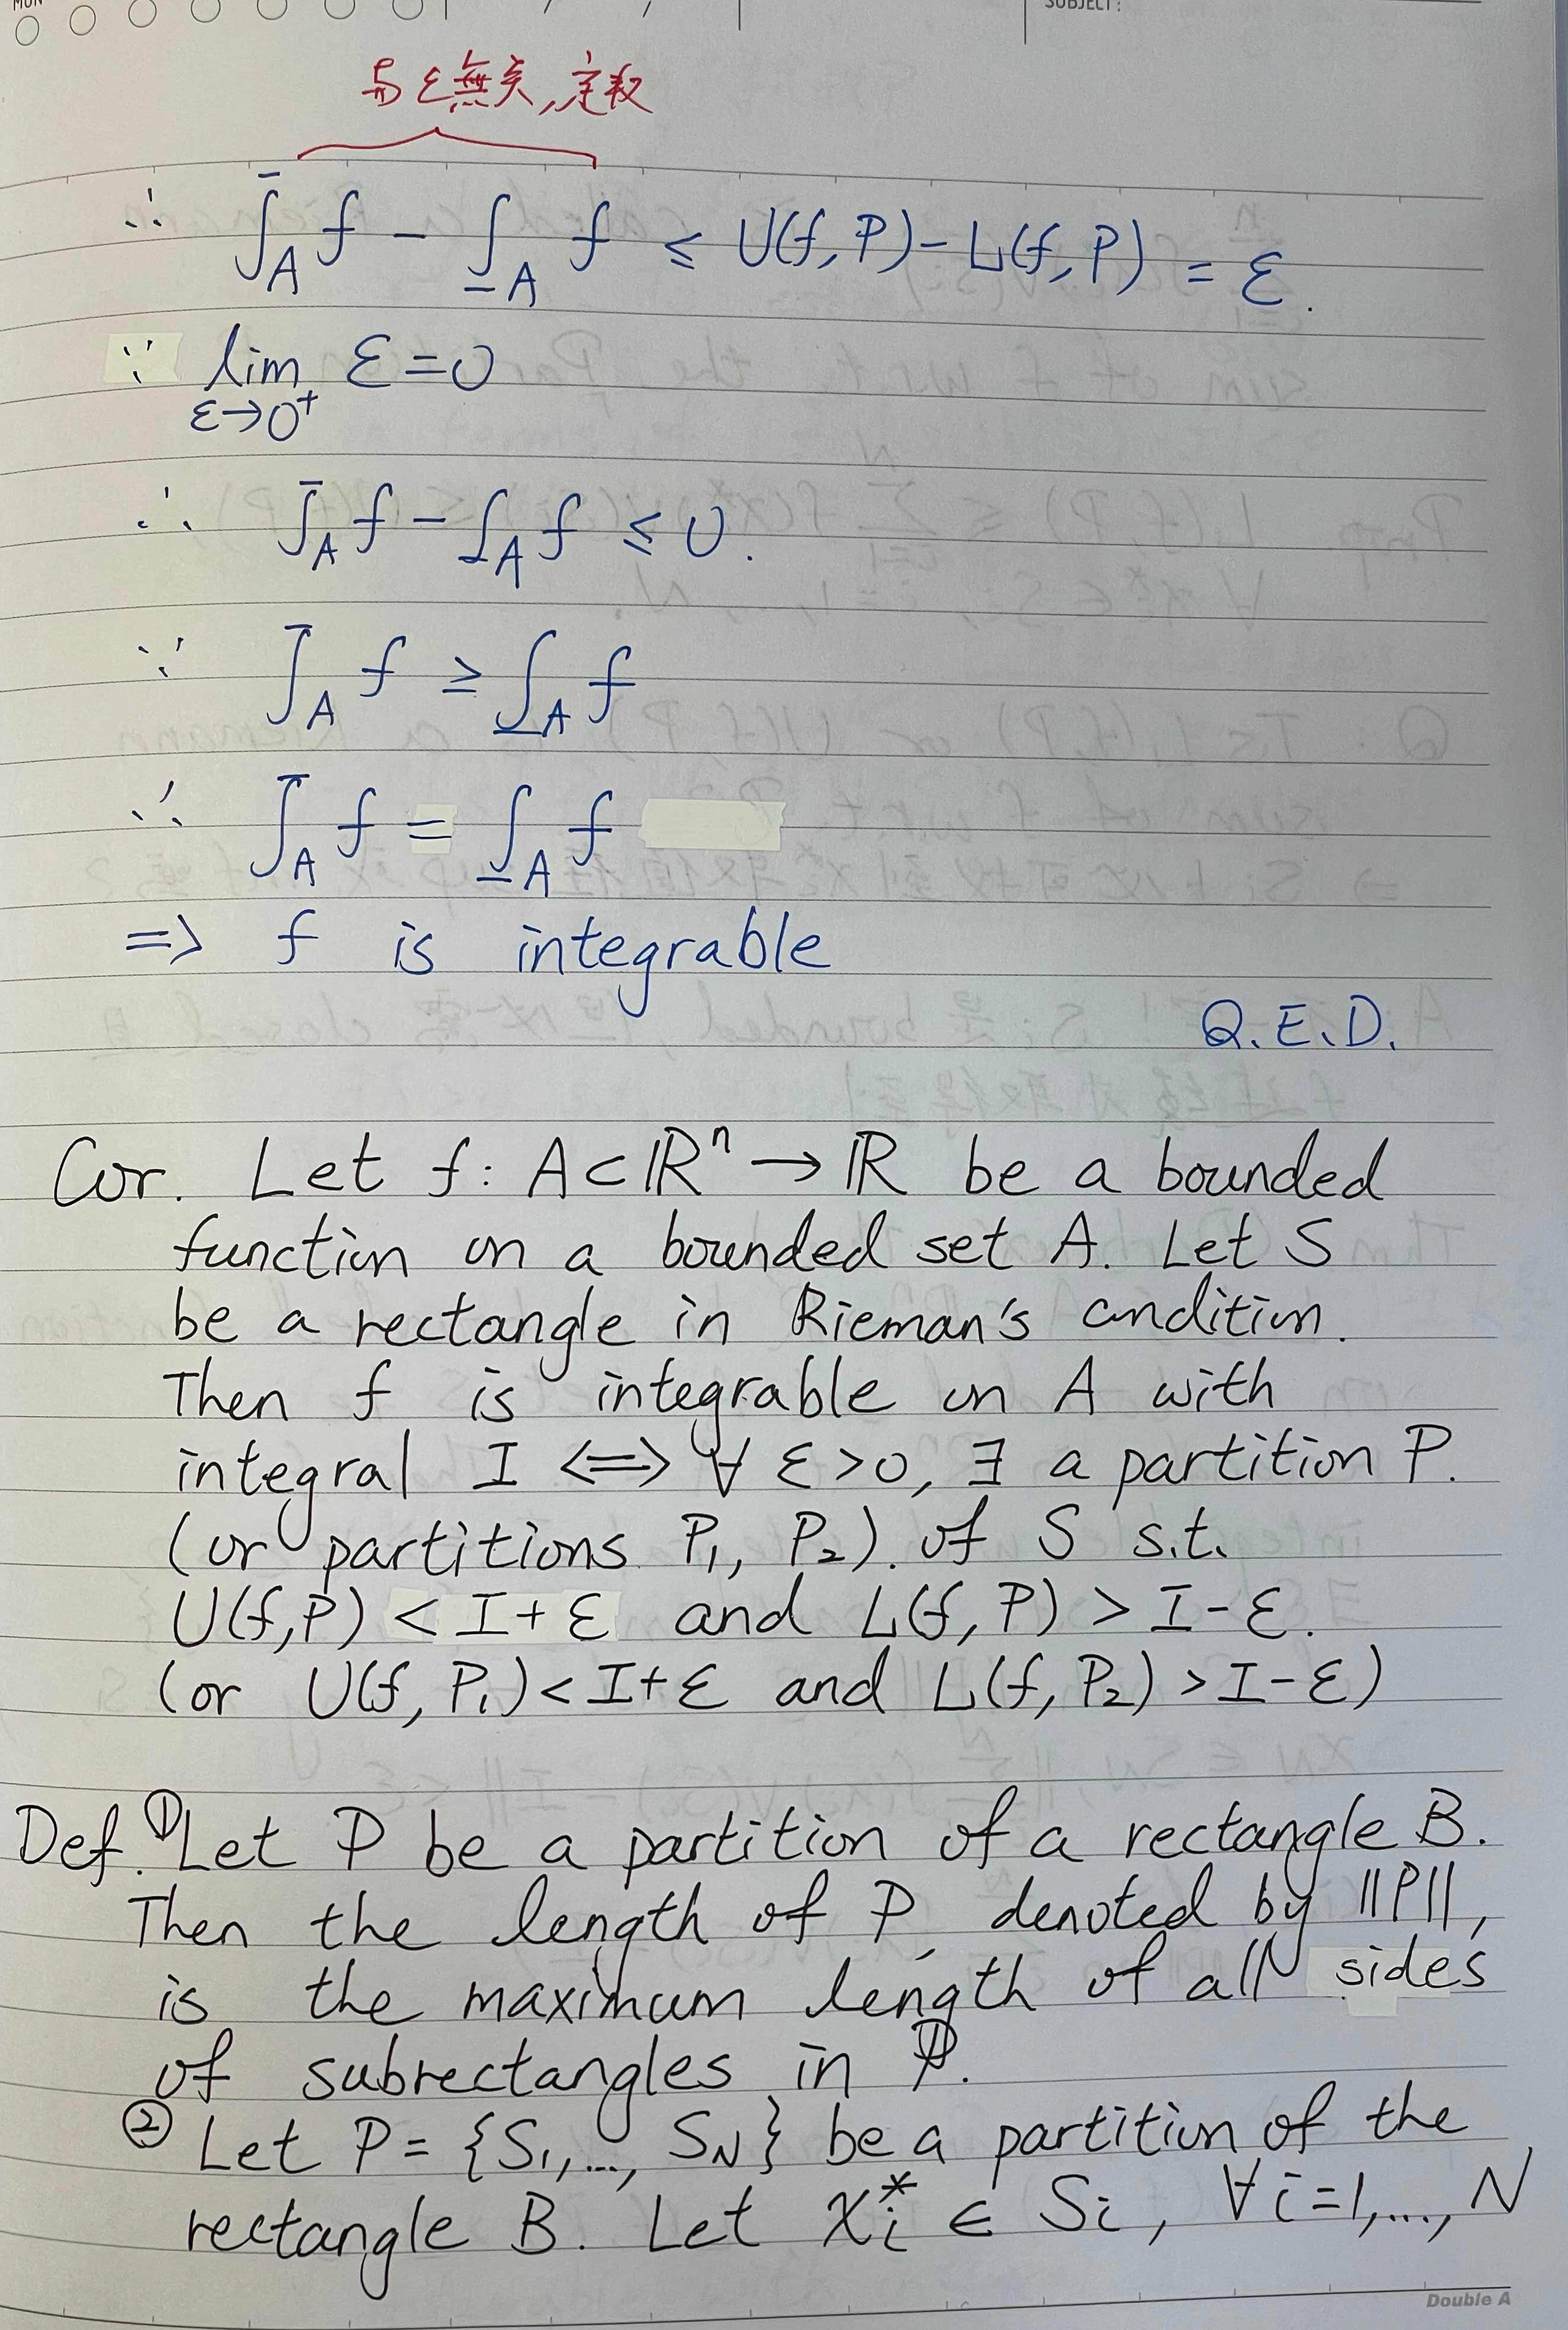 SUBJECT:
与ε無关,定数
∴ ‾∫_A f − _∫_A f ≤ U(f, P) − L(f, P) = ε.
∵ lim ε = 0
ε→0⁺
∴ ‾∫_A f − _∫_A f ≤ 0.
∵ ‾∫_A f ≥ _∫_A f
∴ ‾∫_A f = _∫_A f
=> f is integrable
Q.E.D.
Cor. Let f: A⊂ℝⁿ → ℝ be a bounded
function on a bounded set A. Let S
be a rectangle in Rieman's condition.
Then f is integrable on A with
integral I <=> ∀ ε>0, ∃ a partition P.
(or partitions P₁, P₂). of S s.t.
U(f,P) < I+ε and L(f, P) > I−ε.
(or U(f, P₁) < I+ε and L(f, P₂) > I−ε)
Def. ① Let P be a partition of a rectangle B.
Then the length of P, denoted by ||P||,
is the maximum length of all sides
of subrectangles in P.
② Let P = {S₁, ..., S_N} be a partition of the
rectangle B. Let x_i* ∈ S_i, ∀ i=1, ..., N
Double A